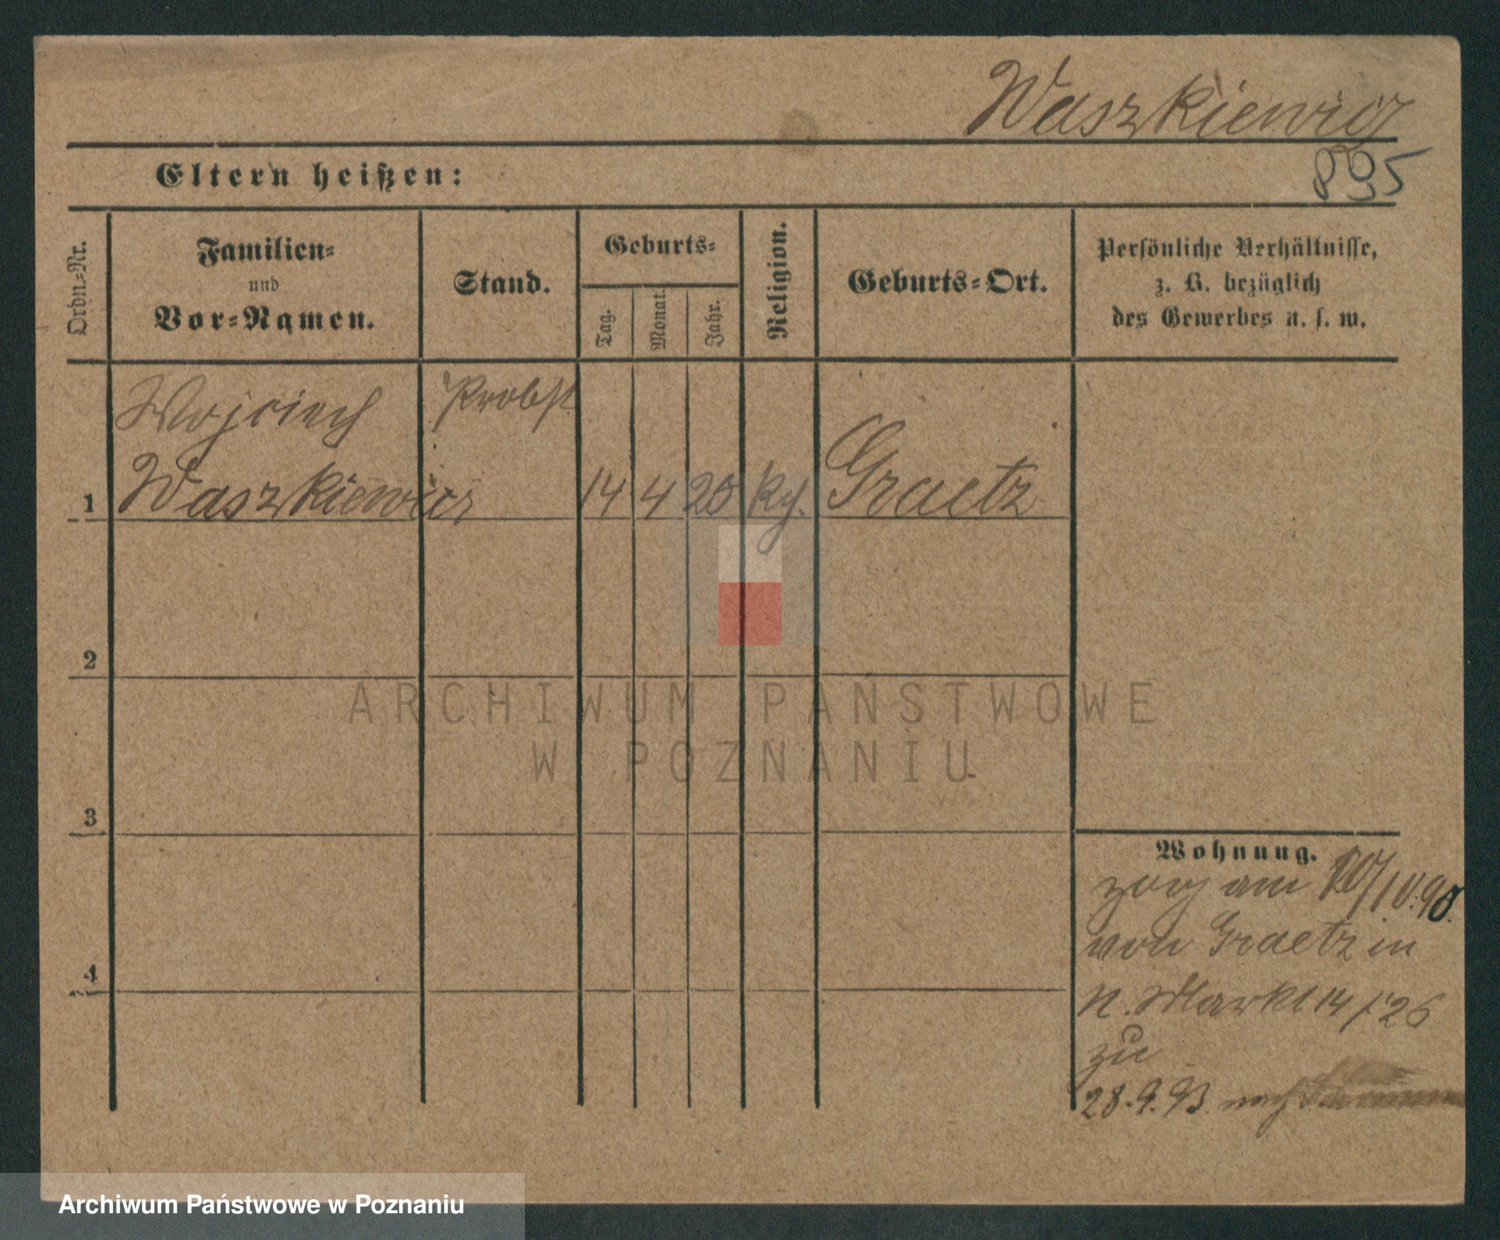 Waszkiewicz
895
Eltern heißen:
Ordn.-Nr.
Familien-
und
Vor-Namen.
Stand.
Geburts-
Tag.
Monat.
Jahr.
Religion.
Geburts-Ort.
Persönliche Verhältnisse,
z. B. bezüglich
des Gewerbes u. s. w.
Wojciech
Probst
1 Waszkiewicz 14 4 20 kth. Graetz
2
3
4
Wohnung.
zog am 10/IV.90.
von Graetz in
N. Markt 14 / 26
zu
28.9.93 nach
ARCHIWUM PAŃSTWOWE
W POZNANIU
Archiwum Państwowe w Poznaniu